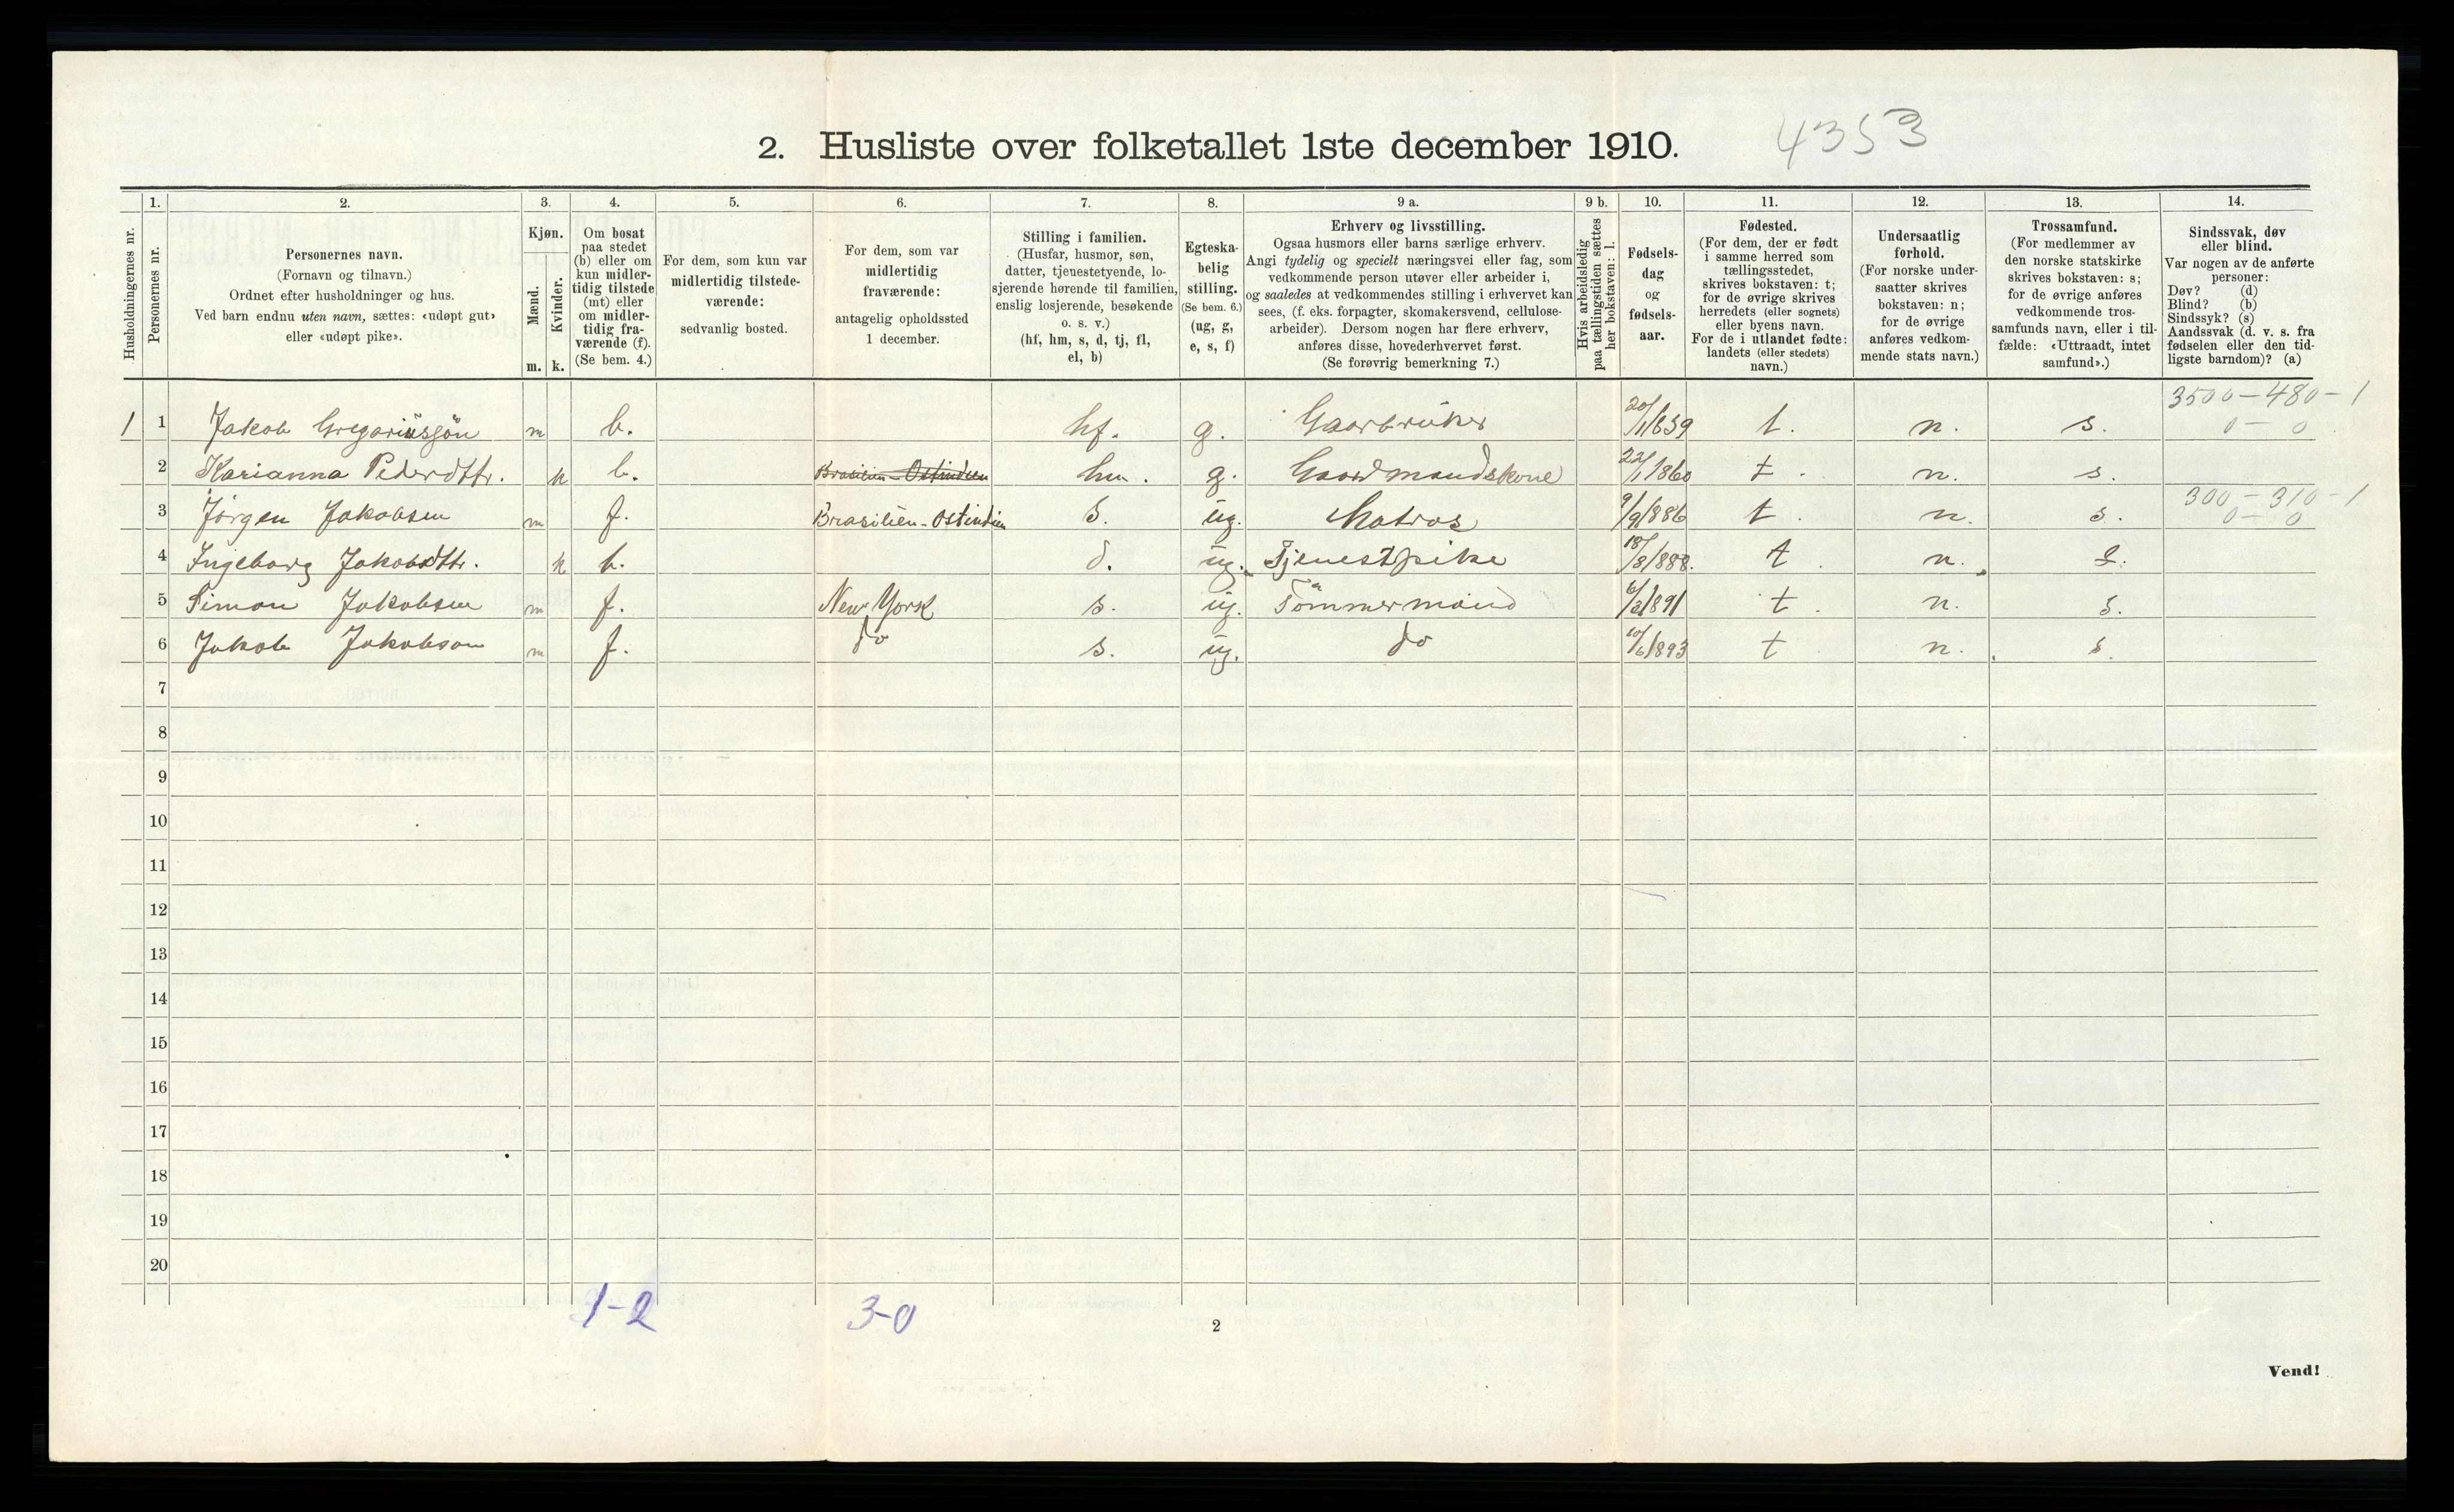 2. Husliste over folketallet 1ste december 1910.
4353
Husholdningernes nr.
1.
Personernes nr.
2.
Personernes navn.
(Fornavn og tilnavn.)
Ordnet efter husholdninger og hus.
Ved barn endnu uten navn, sættes: «udøpt gut»
eller «udøpt pike».
3.
Kjøn.
Mænd.
Kvinder.
m. k.
4.
Om bosat
paa stedet
(b) eller om
kun midler-
tidig tilstede
(mt) eller
om midler-
tidig fra-
værende (f).
(Se bem. 4.)
5.
For dem, som kun var
midlertidig tilstede-
værende:
sedvanlig bosted.
6.
For dem, som var
midlertidig
fraværende:
antagelig opholdssted
1 december.
7.
Stilling i familien.
(Husfar, husmor, søn,
datter, tjenestetyende, lo-
sjerende hørende til familien,
enslig losjerende, besøkende
o. s. v.)
(hf, hm, s, d, tj, fl,
el, b)
8.
Egteska-
belig
stilling.
(Se bem. 6.)
(ug, g,
e, s, f)
9 a.
Erhverv og livsstilling.
Ogsaa husmors eller barns særlige erhverv.
Angi tydelig og specielt næringsvei eller fag, som
vedkommende person utøver eller arbeider i,
og saaledes at vedkommendes stilling i erhvervet kan
sees, (f. eks. forpagter, skomakersvend, cellulose-
arbeider). Dersom nogen har flere erhverv,
anføres disse, hovederhvervet først.
(Se forøvrig bemerkning 7.)
9 b.
Hvis arbeidsledig
paa tællingstiden sættes
her bokstaven: l.
10.
Fødsels-
dag
og
fødsels-
aar.
11.
Fødested.
(For dem, der er født
i samme herred som
tællingsstedet,
skrives bokstaven: t;
for de øvrige skrives
herredets (eller sognets)
eller byens navn.
For de i utlandet fødte:
landets (eller stedets)
navn.)
12.
Undersaatlig
forhold.
(For norske under-
saatter skrives
bokstaven: n;
for de øvrige
anføres vedkom-
mende stats navn.)
13.
Trossamfund.
(For medlemmer av
den norske statskirke
skrives bokstaven: s;
for de øvrige anføres
vedkommende tros-
samfunds navn, eller i til-
fælde: «Uttraadt, intet
samfund».)
14.
Sindssvak, døv
eller blind.
Var nogen av de anførte
personer:
Døv? (d)
Blind? (b)
Sindssyk? (s)
Aandssvak (d. v. s. fra
fødselen eller den tid-
ligste barndom)? (a)
3500 - 480 - 1
1 1 Jakob Gregariusøn m b. hf. g. Gaarbruker 20/1 1839 t. n. s. 0 - 0
2 Karianna Pedersdtr. k b. Brasilien - Ostindien hm. g. Gaardmandskone 22/1 1860 t. n. s.
300 - 310 - 1
3 Jørgen Jakobsen m f. Brasilien - Ostindien s. ug. Matros 9/9 1886 t. n. s. 0 - 0
4 Ingeborg Jakobsdtr. k b. d. ug. Tjenestpike 18/8 1888. t. n. s.
5 Simon Jakobsen m f. New York s. ug. Tømmermand 6/2 1891 t. n. s.
6 Jakob Jakobsen m f. do s. ug. do 10/6 1893 t n. s.
7
8
9
10
11
12
13
14
15
16
17
18
19
20
1-2 3-0
2
Vend!